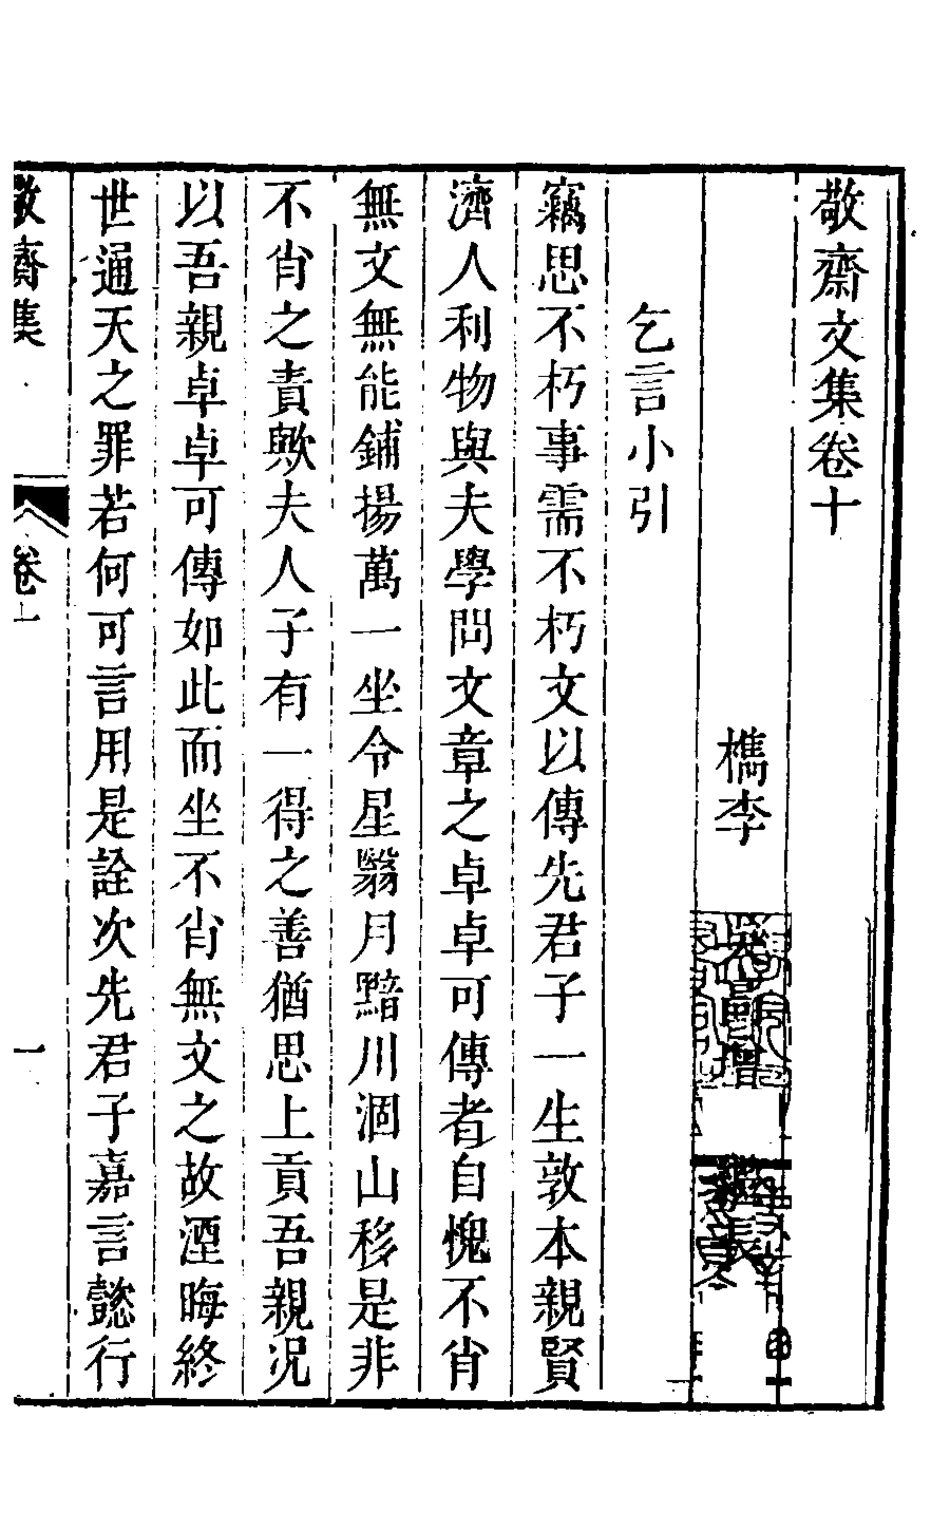 敬齋文集卷十
檇李吳昌增繼長
乞言小引
竊思不朽事需不朽文以傳先君子一生敦本親賢
濟人利物與夫學問文章之卓卓可傳者自愧不肖
無文無能鋪揚萬一坐令星翳月黯川涸山移是非
不肖之責歟夫人子有一得之善猶思上貢吾親况
以吾親卓卓可傳如此而坐不肖無文之故湮晦終
世通天之罪若何可言用是詮次先君子嘉言懿行
敬齋集
卷十
一